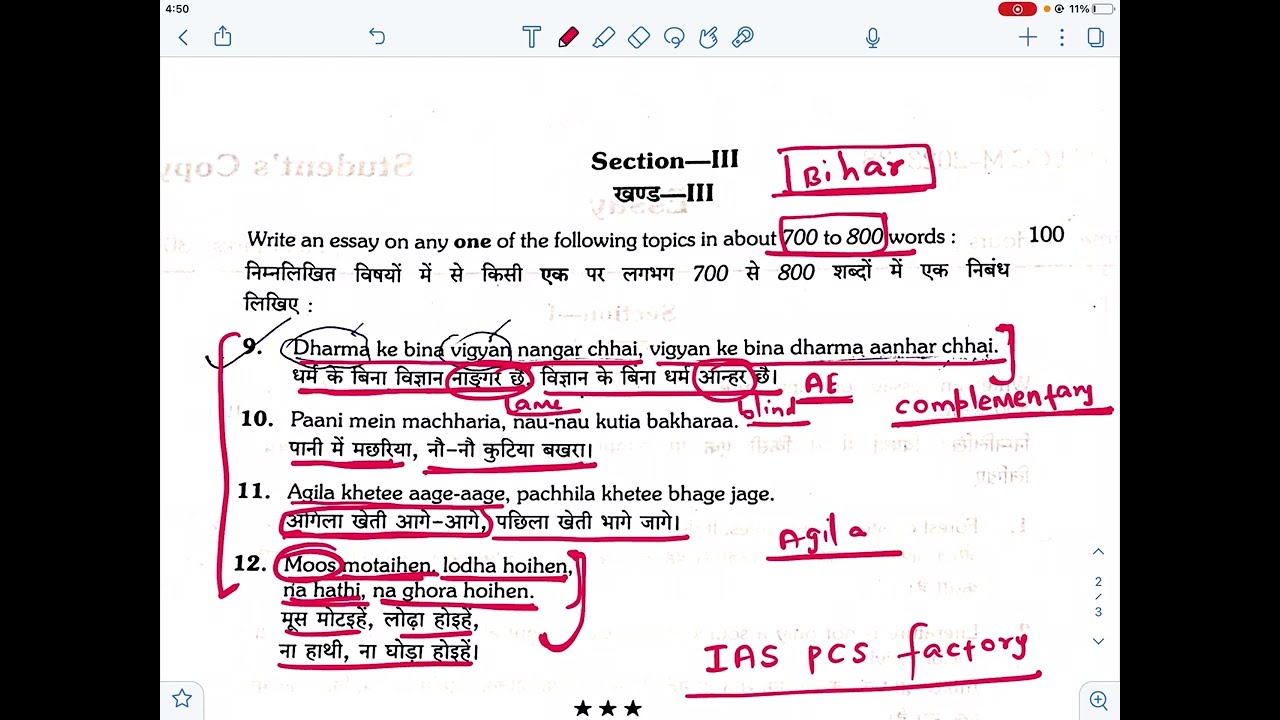 4:50
11%
Section—III
Bihar
खण्ड—III
Write an essay on any one of the following topics in about 700 to 800 words : 100
निम्नलिखित विषयों में से किसी एक पर लगभग 700 से 800 शब्दों में एक निबंध
लिखिए :
9. Dharma ke bina vigyan nangar chhai, vigyan ke bina dharma aanhar chhai.
धर्म के बिना विज्ञान नाङ्गर छै, विज्ञान के बिना धर्म आन्हर छै।
AE
lame
blind
complementary
10. Paani mein machharia, nau-nau kutia bakharaa.
पानी में मछरिया, नौ-नौ कुटिया बखरा।
11. Agila khetee aage-aage, pachhila khetee bhage jage.
अगिला खेती आगे-आगे, पछिला खेती भागे जागे।
Agila
12. Moos motaihen, lodha hoihen,
na hathi, na ghora hoihen.
मूस मोटइहें, लोढ़ा होइहें,
ना हाथी, ना घोड़ा होइहें।
IAS PCS factory
★★★
2
3
Student's Copy
Essay
Section—I